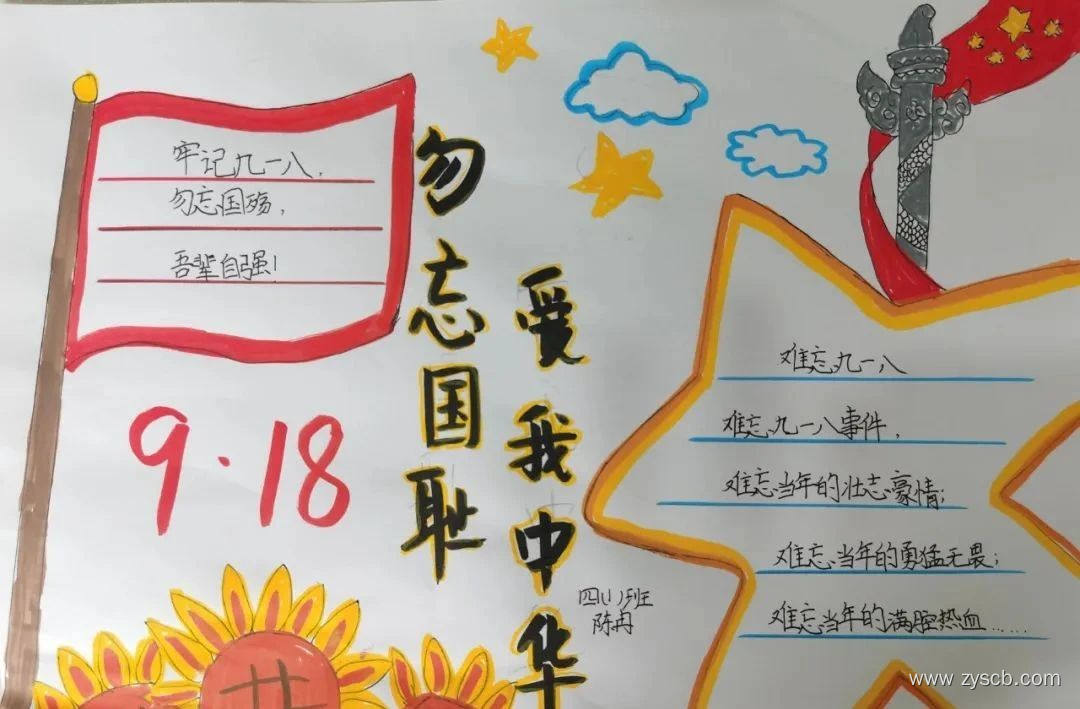 牢记九一八,
勿忘国殇,
吾辈自强!
9·18
勿忘国耻
爱我中华
难忘九一八
难忘九一八事件,
难忘当年的壮志豪情;
难忘当年的勇猛无畏;
难忘当年的满腔热血……
四(1)班
陈冉
www.zyscb.com